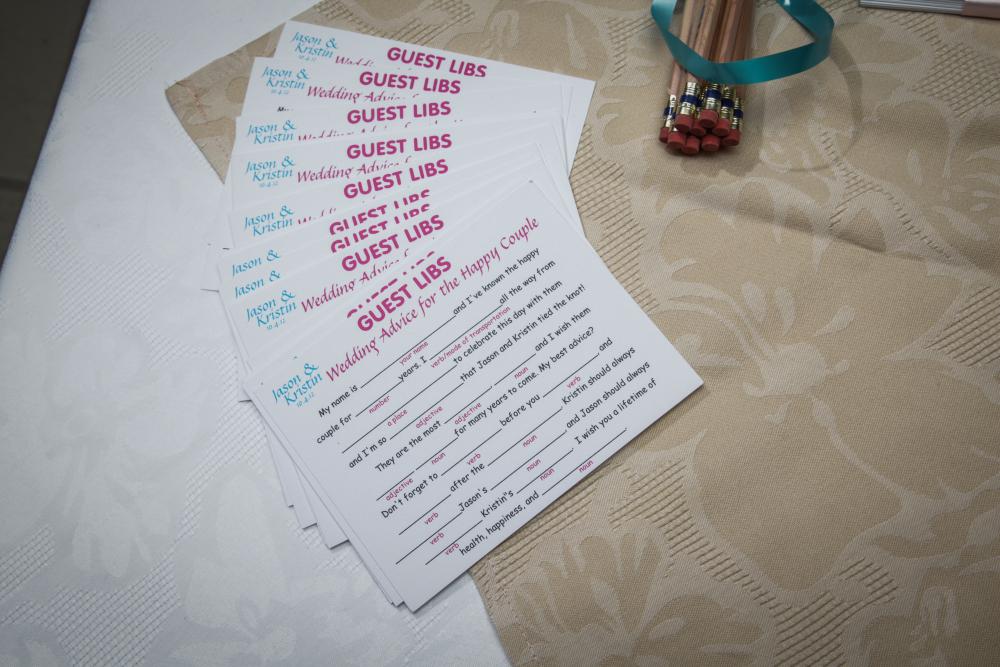 Jason &
Kristin
GUEST LIBS
Jason &
Kristin
10.4.12
GUEST LIBS
Wedding Advic
Jason &
GUEST LIBS
Jason &
Kristin
10.4.12
GUEST LIBS
Wedding Advice
Jason &
Kristin
GUEST LIBS
Jason &
GUEST LIBS
Jason &
GUEST LIBS
Jason &
Kristin
10.4.12
GUEST LIBS
Wedding Advice
GUEST LIBS
Wedding Advice for the Happy Couple
Jason &
Kristin
10.4.12
My name is ____ and I've known the happy
your name
couple for ____ years. I ____ all the way from
number verb/mode of transportation
____ to celebrate this day with them
a place
and I'm so ____ that Jason and Kristin tied the knot!
adjective
They are the most ____ ____ and I wish them
adjective noun
____ ____ for many years to come. My best advice?
adjective noun
Don't forget to ____ before you ____ and
verb verb
____ after the ____. Kristin should always
verb noun
____ Jason's ____ and Jason should always
verb noun
____ Kristin"s ____. I wish you a lifetime of
verb noun
health, happiness, and ____.
noun